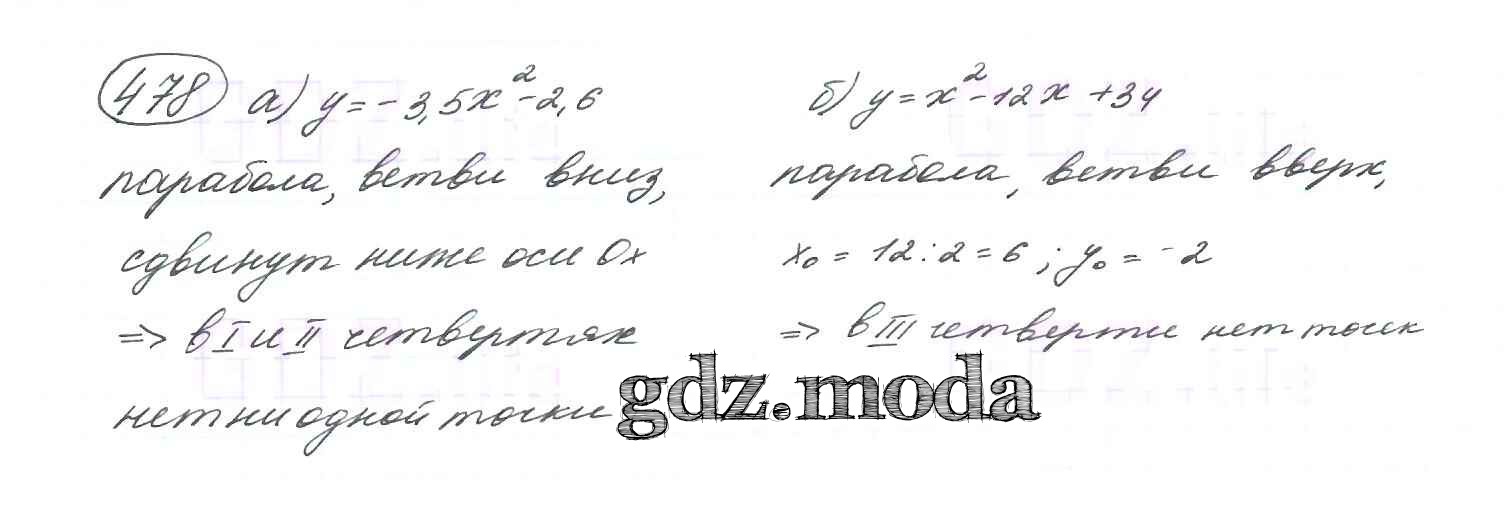 478 а) y = -3,5x² - 2,6
парабола, ветви вниз,
сдвинут ниже оси Ox
=> в I и II четвертях
нет ни одной точки
б) y = x² - 12x + 34
парабола, ветви вверх,
x₀ = 12 : 2 = 6 ; y₀ = -2
=> в III четверти нет точек
gdz.moda